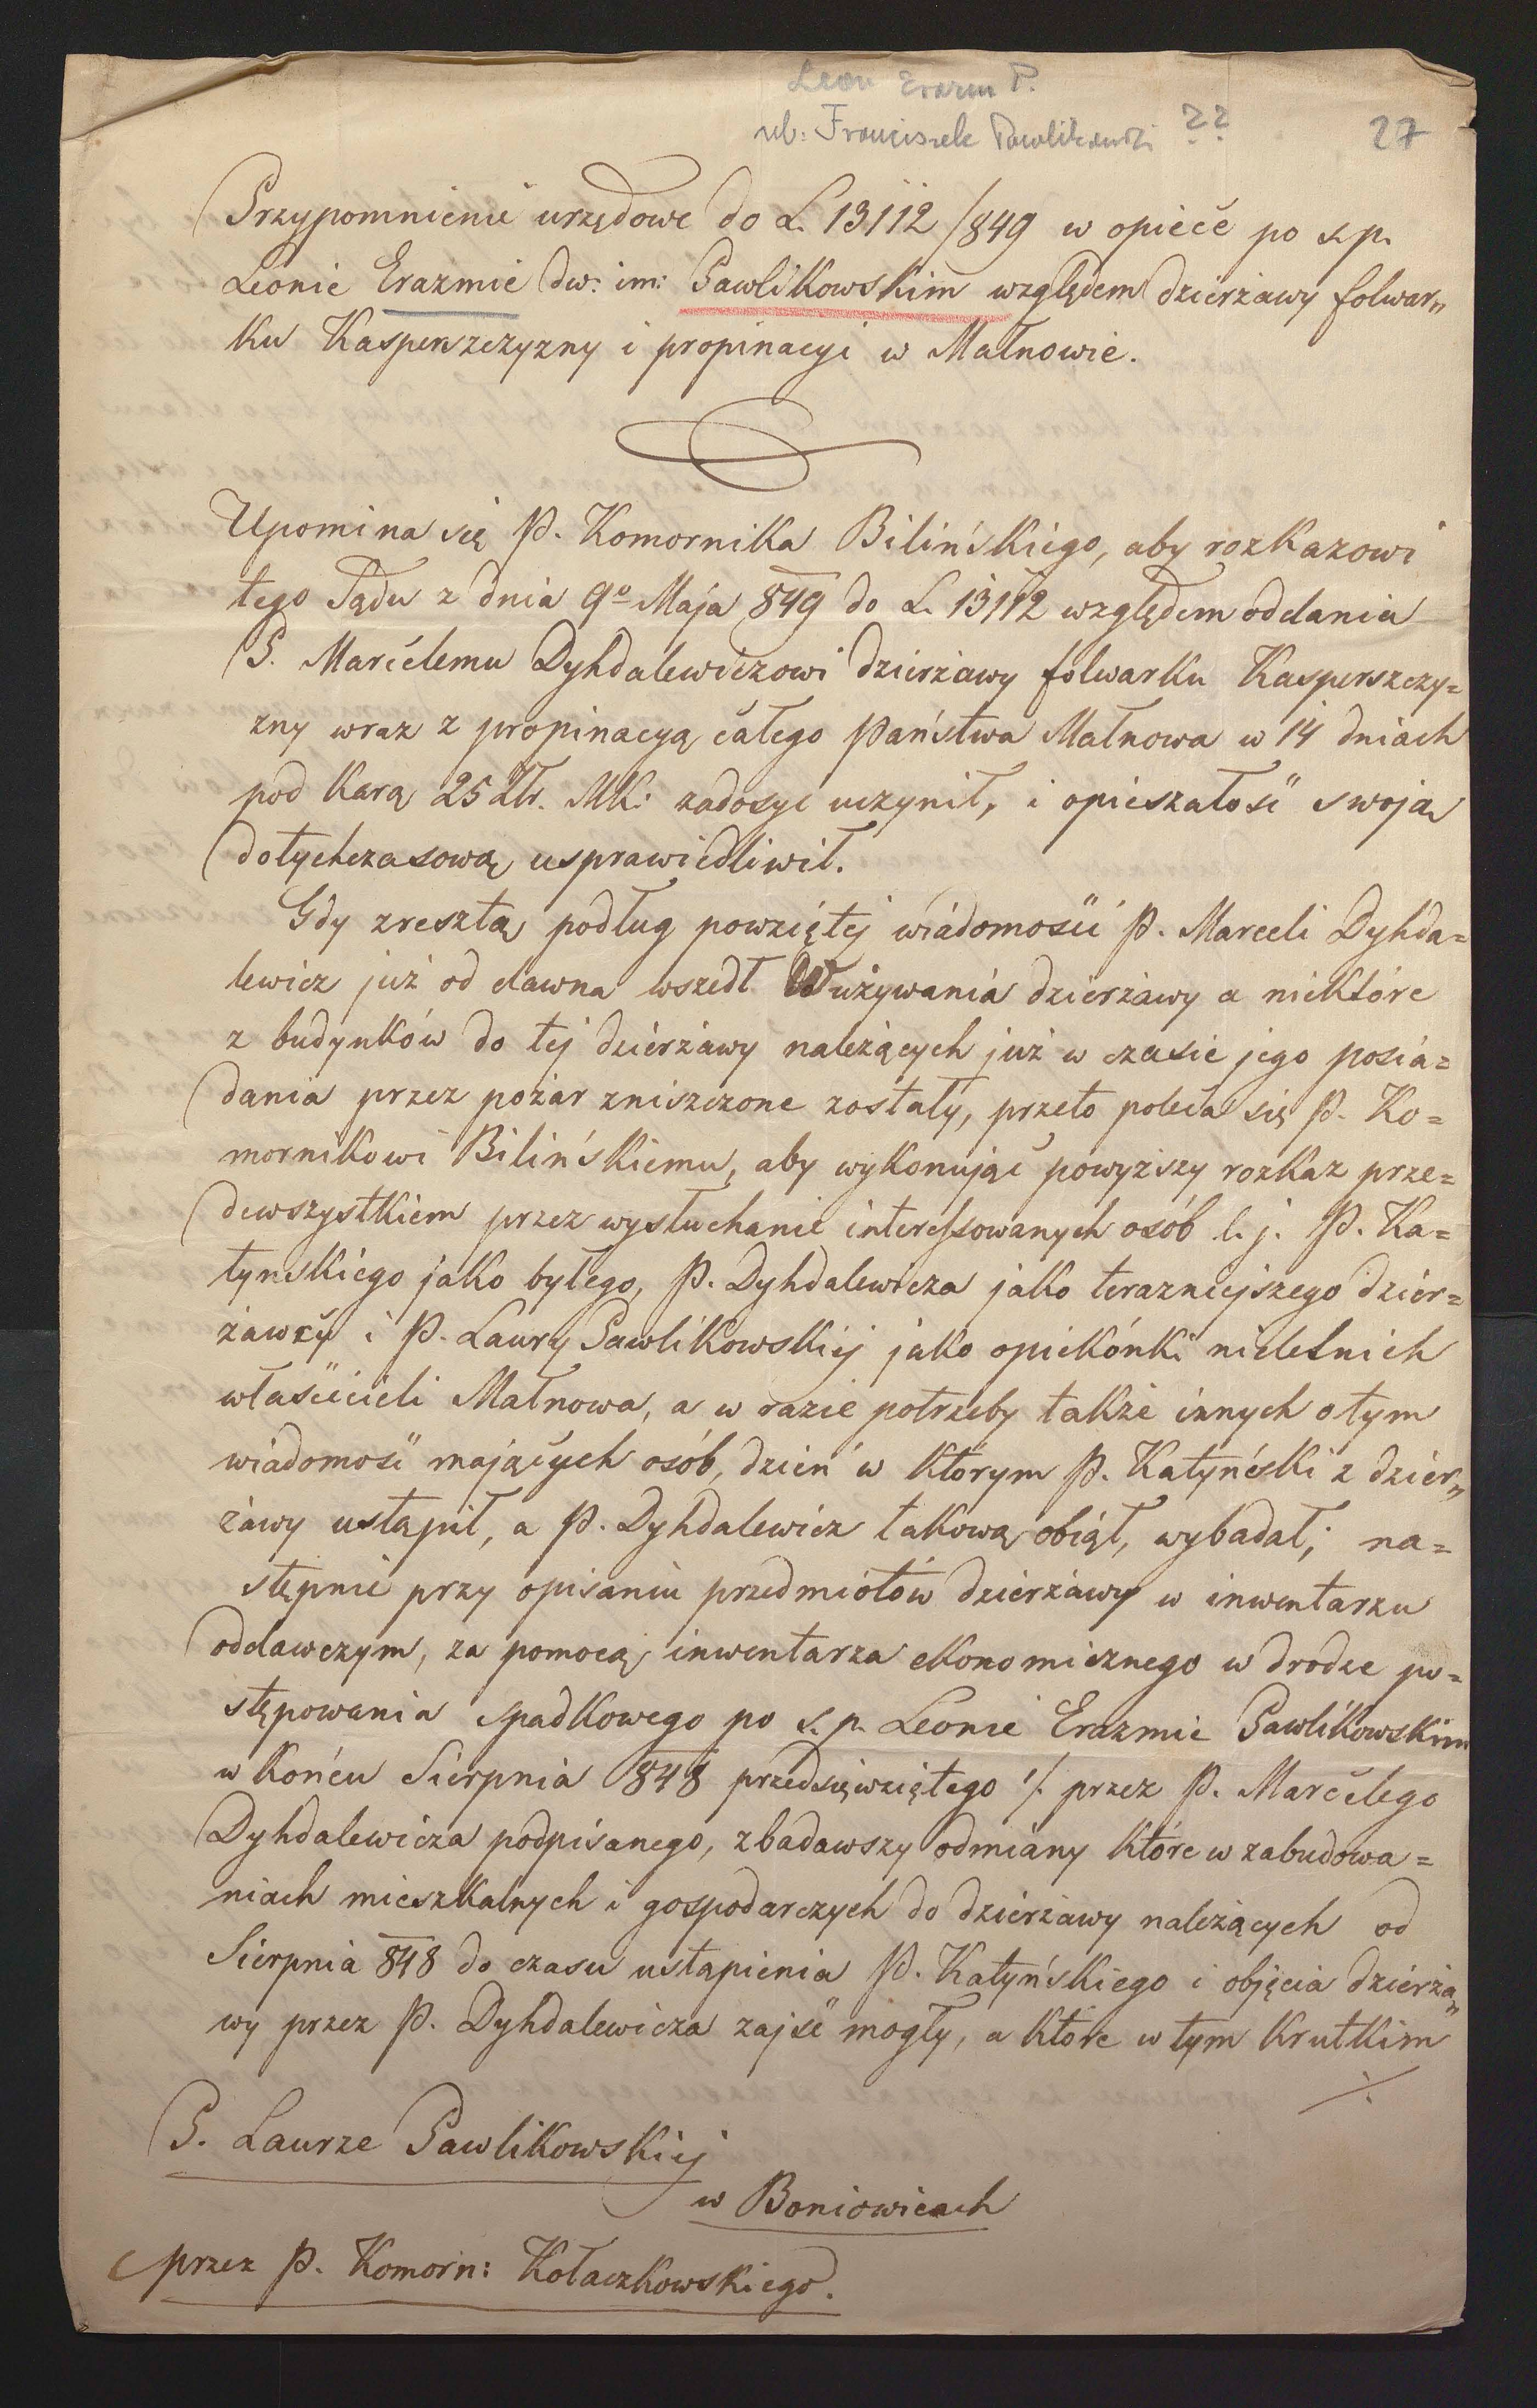 Leon Erazm P.
ul: Franciszek Pawlikowski ??
27
Przypomnienie urzędowe do L. 13112/849 w opiece po s.p.
Leonie Erazmie dw: im: Pawlikowskim względem dzierżawy folwar„
ku Kasperszczyzny i propinacyi w Małnowie.
Upomina się P. Komornika Bilińskiego, aby rozkazowi
tego Sądu z dnia 9º Maja 849 do L. 13112 względem oddania
P. Marcelemu Dyhdalewiczowi dzierżawy folwarku Kasperszczy=
zny wraz z propinacyą całego Państwa Małnowa w 14 dniach
pod karą 25 Złr. MK: zadosyć uczynił, i opieszałość swoją
dotychczasową usprawiedliwił.
Gdy zresztą podług powziętej wiadomości P. Marceli Dyhda=
lewicz już od dawna wszedł w używania dzierżawy a niektóre
z budynków do tej dzierżawy należących już w czasie jego posia=
dania przez pożar zniszczone zostały, przeto poleca się P. Ko=
mornikowi Bilińskiemu, aby wykonując powyższy rozkaz prze=
dewszystkiem przez wysłuchanie interessowanych osób t. j. P. Ka=
tyńskiego jako byłego, P. Dyhdalewicza jako terazniejszego dzier=
żawcy i P. Laury Pawlikowskiej jako opiekónki nieletnich
właścicieli Małnowa, a w razie potrzeby także innych o tym
wiadomość mających osób, dzień w którym P. Katyński z dzier„
żawy ustąpił, a P. Dyhdalewicz takową obiął, wybadał; na=
stępnie przy opisaniu przedmiotów dzierżawy w inwentarzu
oddawczym, za pomocą inwentarza ekonomicznego w drodze po=
stępowania spadkowego po s.p. Leonie Erazmie Pawlikowskim
w końcu Sierpnia 848 przedsięwziętego /. przez P. Marcelego
Dyhdalewicza podpisanego, zbadawszy odmiany które w zabudowa=
niach mieszkalnych i gospodarczych do dzierżawy należących od
Sierpnia 848 do czasu ustąpienia P. Katyńskiego i objęcia dzierża„
wy przez P. Dyhdalewicza zajść mogły, a które w tym krutkim
./.
P. Laurze Pawlikowskiej
w Boniowicach
przez P. Komorn: Kołaczkowskiego.